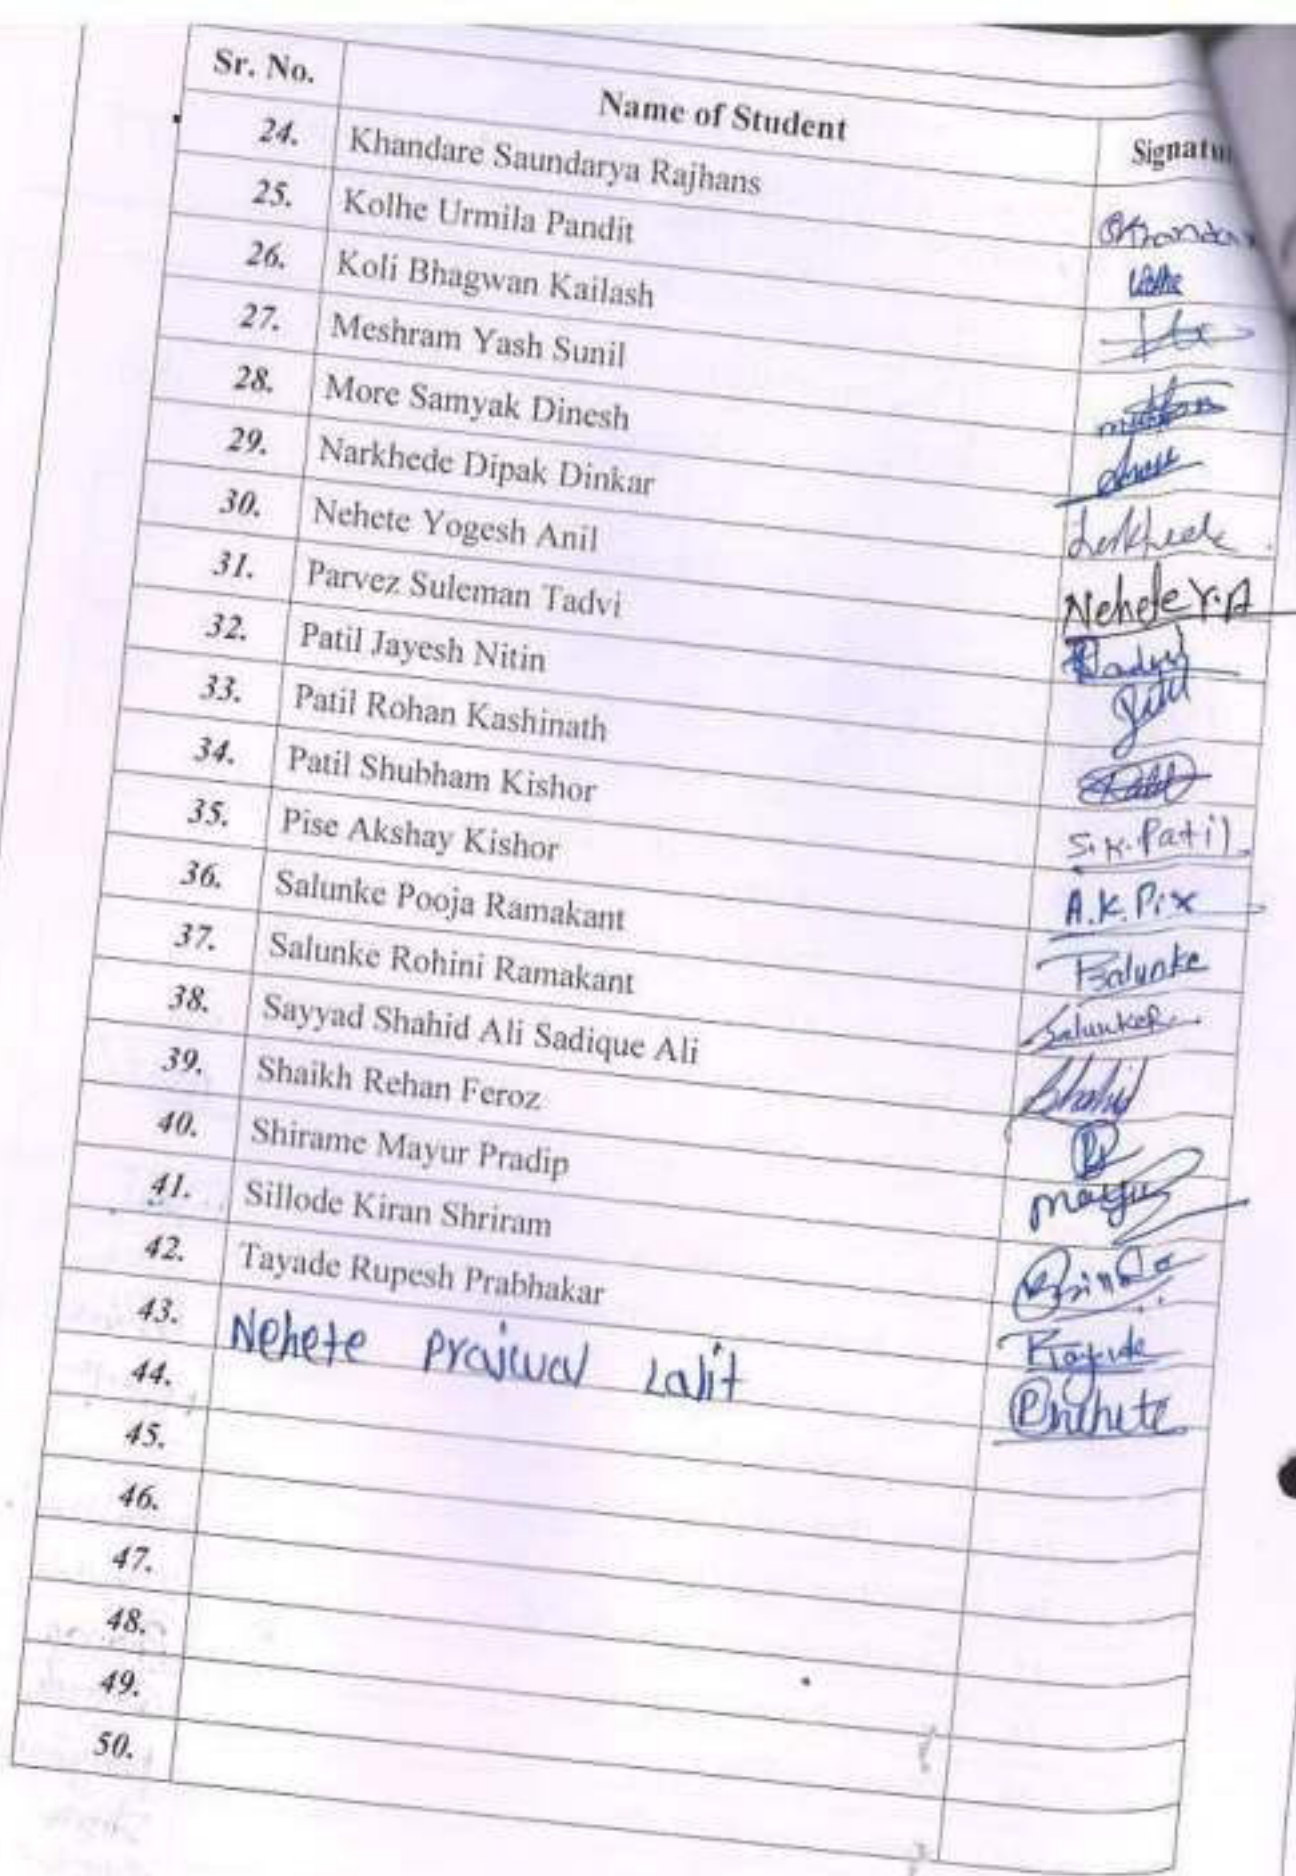 Sr. No. Name of Student Signatu
24. Khandare Saundarya Rajhans
25. Kolhe Urmila Pandit
26. Koli Bhagwan Kailash
27. Meshram Yash Sunil
28. More Samyak Dinesh
29. Narkhede Dipak Dinkar
30. Nehete Yogesh Anil
31. Parvez Suleman Tadvi Nehete Y.A
32. Patil Jayesh Nitin
33. Patil Rohan Kashinath
34. Patil Shubham Kishor
35. Pise Akshay Kishor S.K.Patil
36. Salunke Pooja Ramakant
37. Salunke Rohini Ramakant
38. Sayyad Shahid Ali Sadique Ali
39. Shaikh Rehan Feroz Shahid
40. Shirame Mayur Pradip
41. Sillode Kiran Shriram
42. Tayade Rupesh Prabhakar
43. Nehete Prajwal Lalit
44. Pnehete
45.
46.
47.
48.
49.
50.